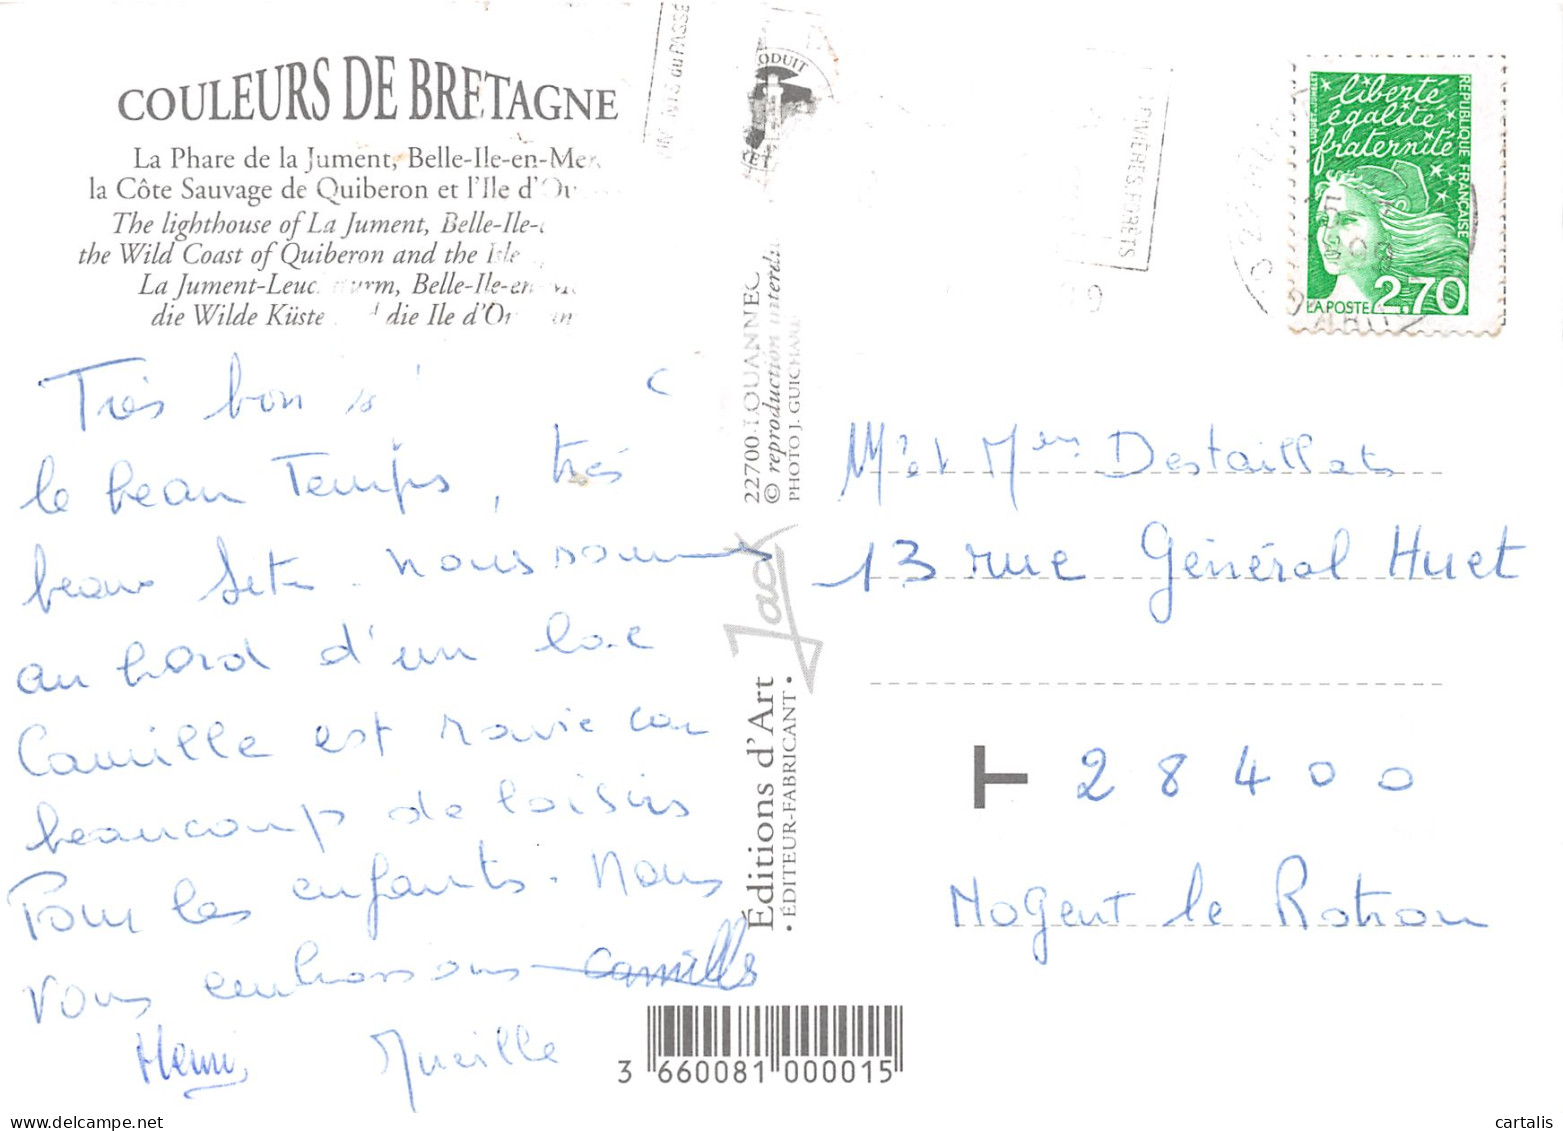 COULEURS DE BRETAGNE
La Phare de la Jument, Belle-Ile-en-Mer
la Côte Sauvage de Quiberon et l'Ile d'Ou
The lighthouse of La Jument, Belle-Ile-
the Wild Coast of Quiberon and the Isle
La Jument-Leuc turm, Belle-Ile-en-
die Wilde Küste die Ile d'O
Très bon
le beau Temps, très
beau . nous sommes
au bord d'un lac
Camille est ravie car
beaucoup de loisirs
Pour les enfants. Nous
vous embrassons Camille
Henri Mireille
ODUIT
22700 LOUANNEC
© reproduction interdi
PHOTO J. GUICHAR
Jack
Éditions d'Art
• ÉDITEUR-FABRICANT •
3 660081 000015
DU PASSÉ
RIVIÈRES, FORÊTS
liberté
égalité
fraternité
RÉPUBLIQUE FRANÇAISE
LA POSTE 2,70
Mr et Mme Destaillats
13 rue Général Huet
T 28400
Nogent le Rotrou
cartalis